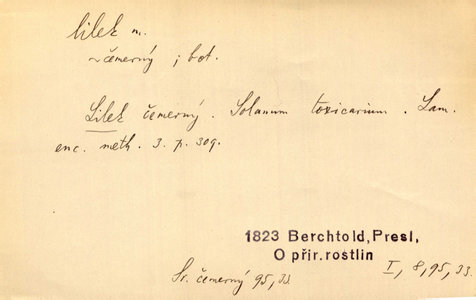 lilek m.
~čemerný ; bot.
Lilek čemerný. Solanum toxicarium. Lam.
enc. meth. 3. p. 309.
1823 Berchtold, Presl,
O přír. rostlin
I, 8, 95, 33.
Sr. čemerný 95, 33